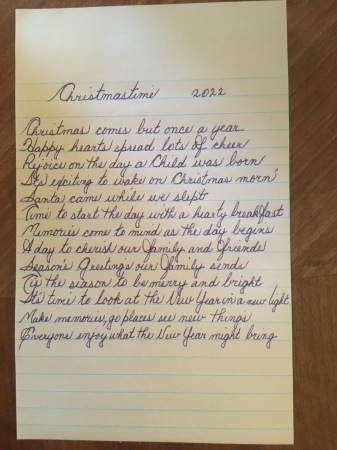 Christmastime 2022
Christmas comes but once a year
Happy hearts spread lots of cheer
Rejoice on the day a Child was born
It's exciting to wake on Christmas morn'
Santa came while we slept
Time to start the day with a hearty breakfast
Memories come to mind as the day begins
A day to cherish our Family and Friends
Season's Greetings our Family sends
'Tis the season to be merry and bright
It's time to look at the New Year in a new light
Make memories, go places see new things
Everyone enjoy what the New Year might bring